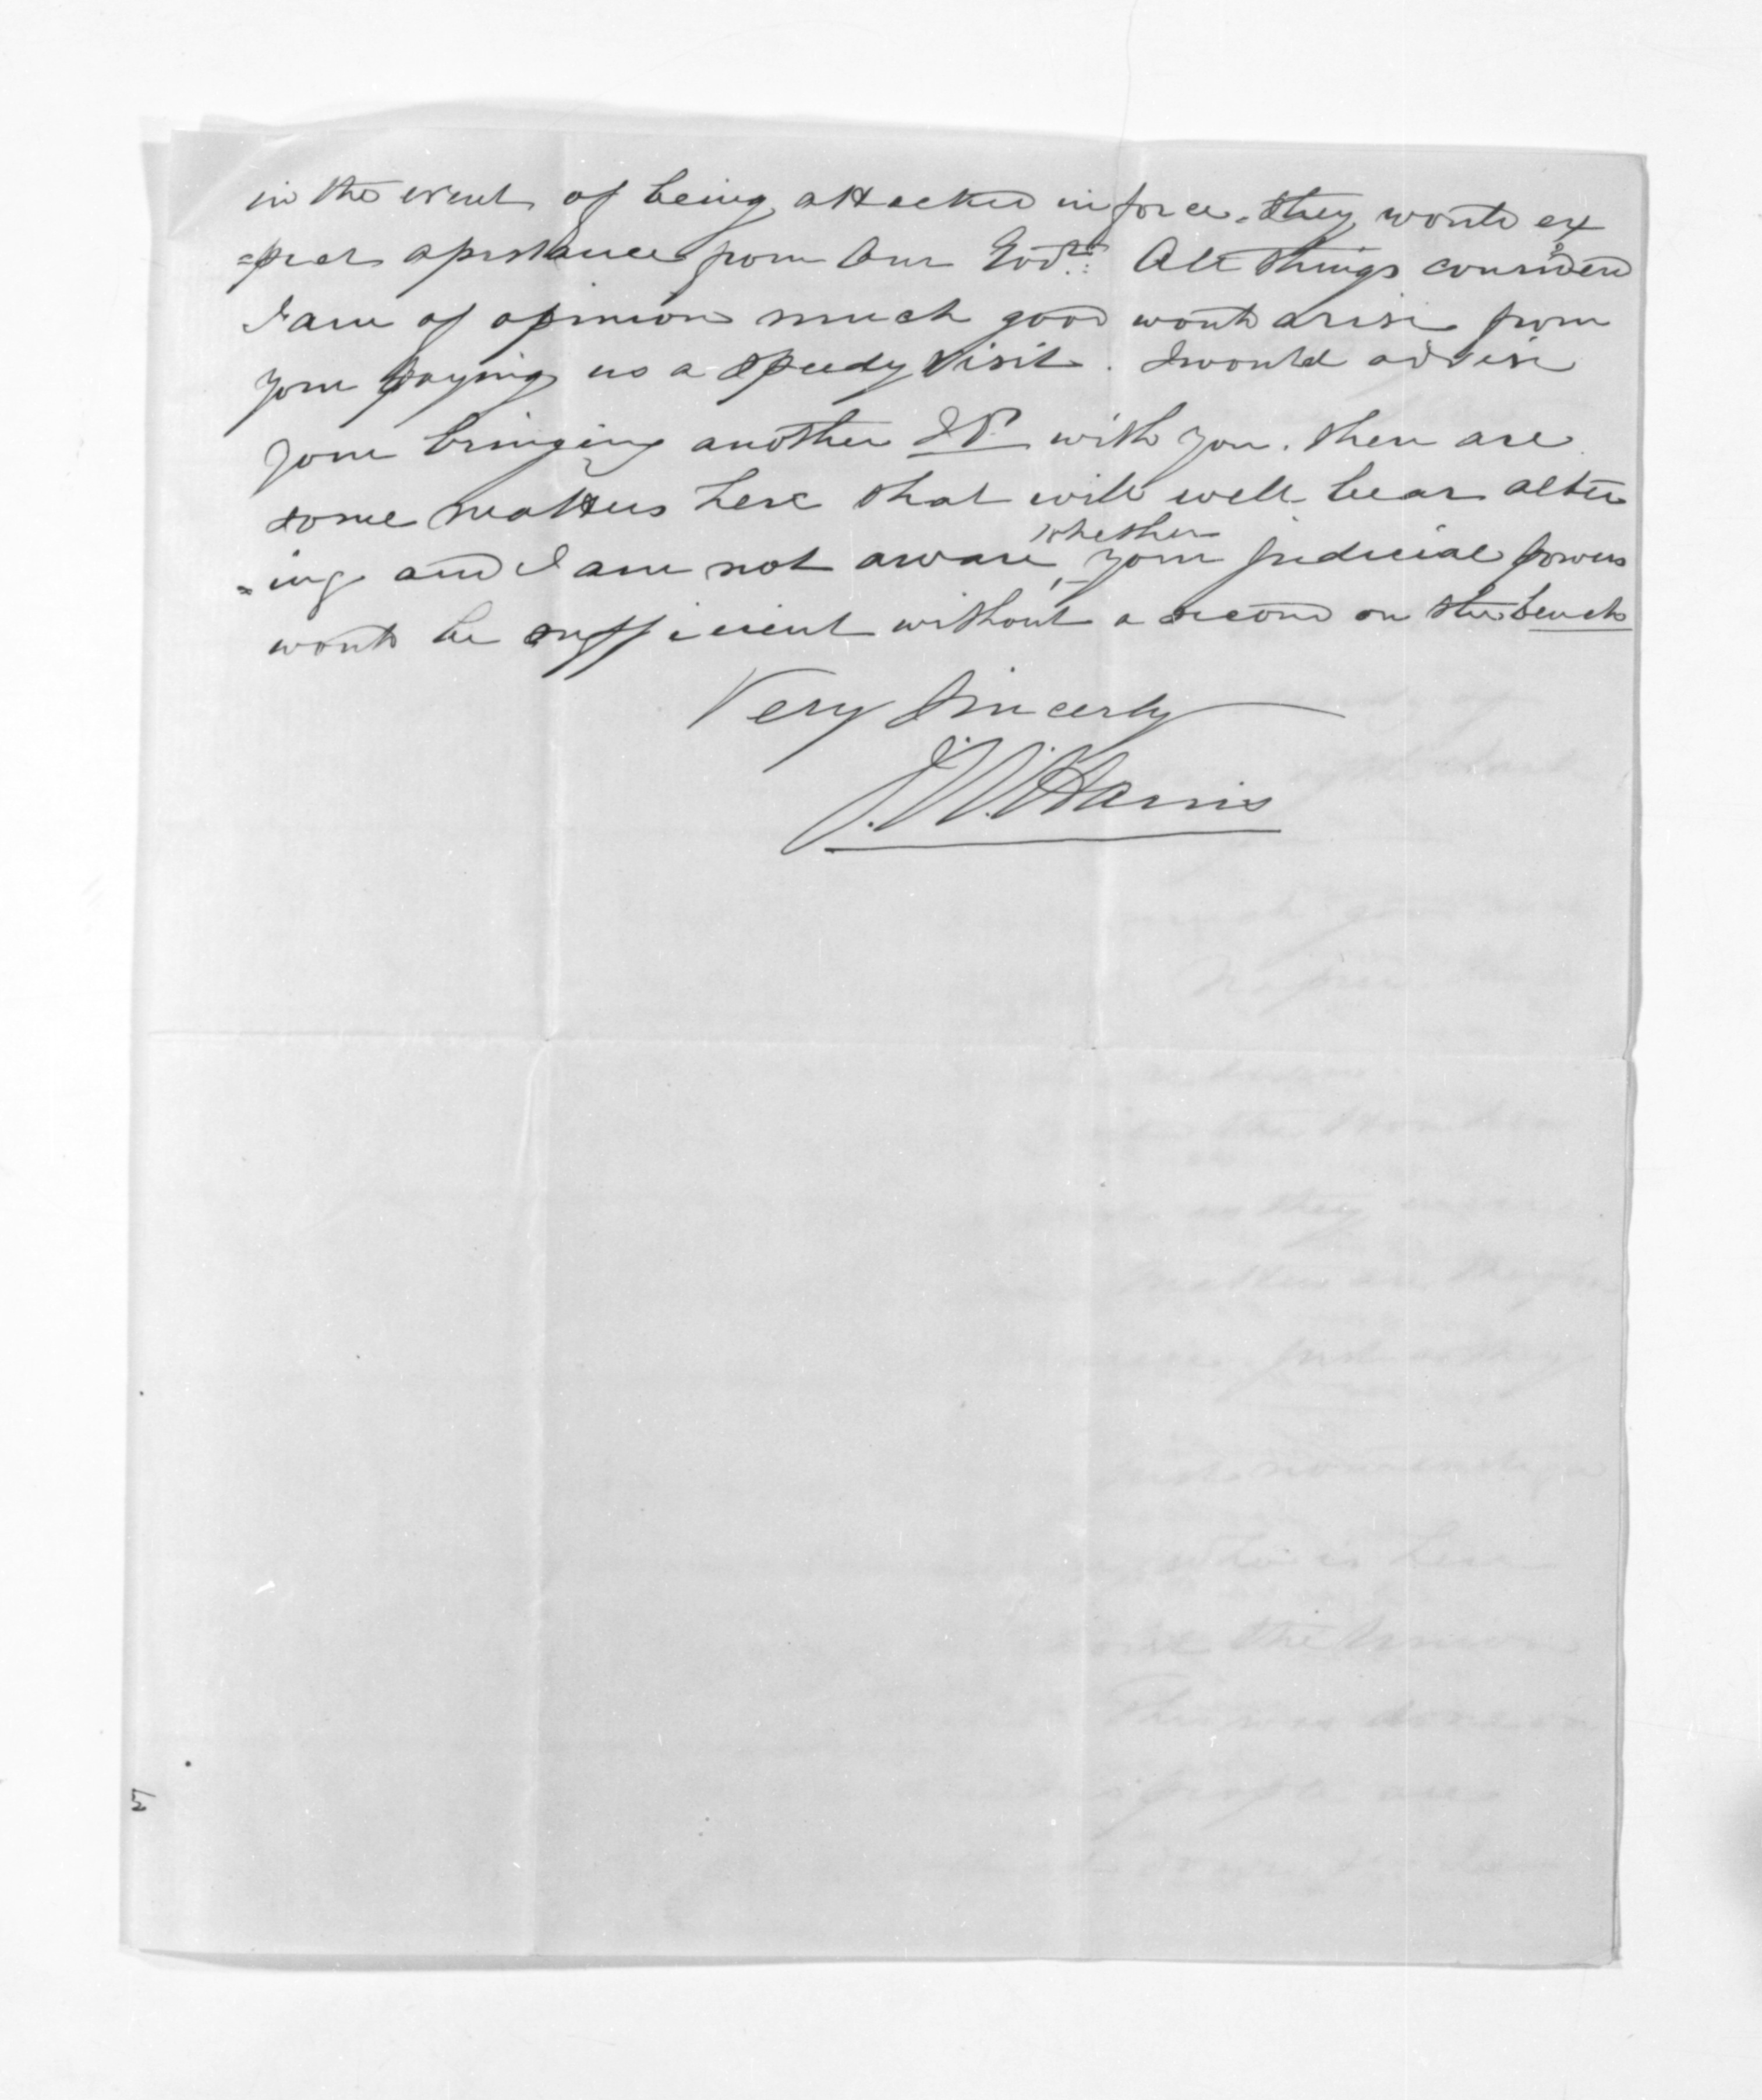 in the event of being attacked in force. they would ex
=pect assistance from our Govt: All things considered
I am of opinion much good would arise from
your paying us a speedy visit. I would advise
your bringing another JP. with you. there are
some matters here that will well bear alter
=ing and I am not aware whether your judicial powers
would be sufficient without a second on the bench
Very Sincerly
J. W. Harris
5